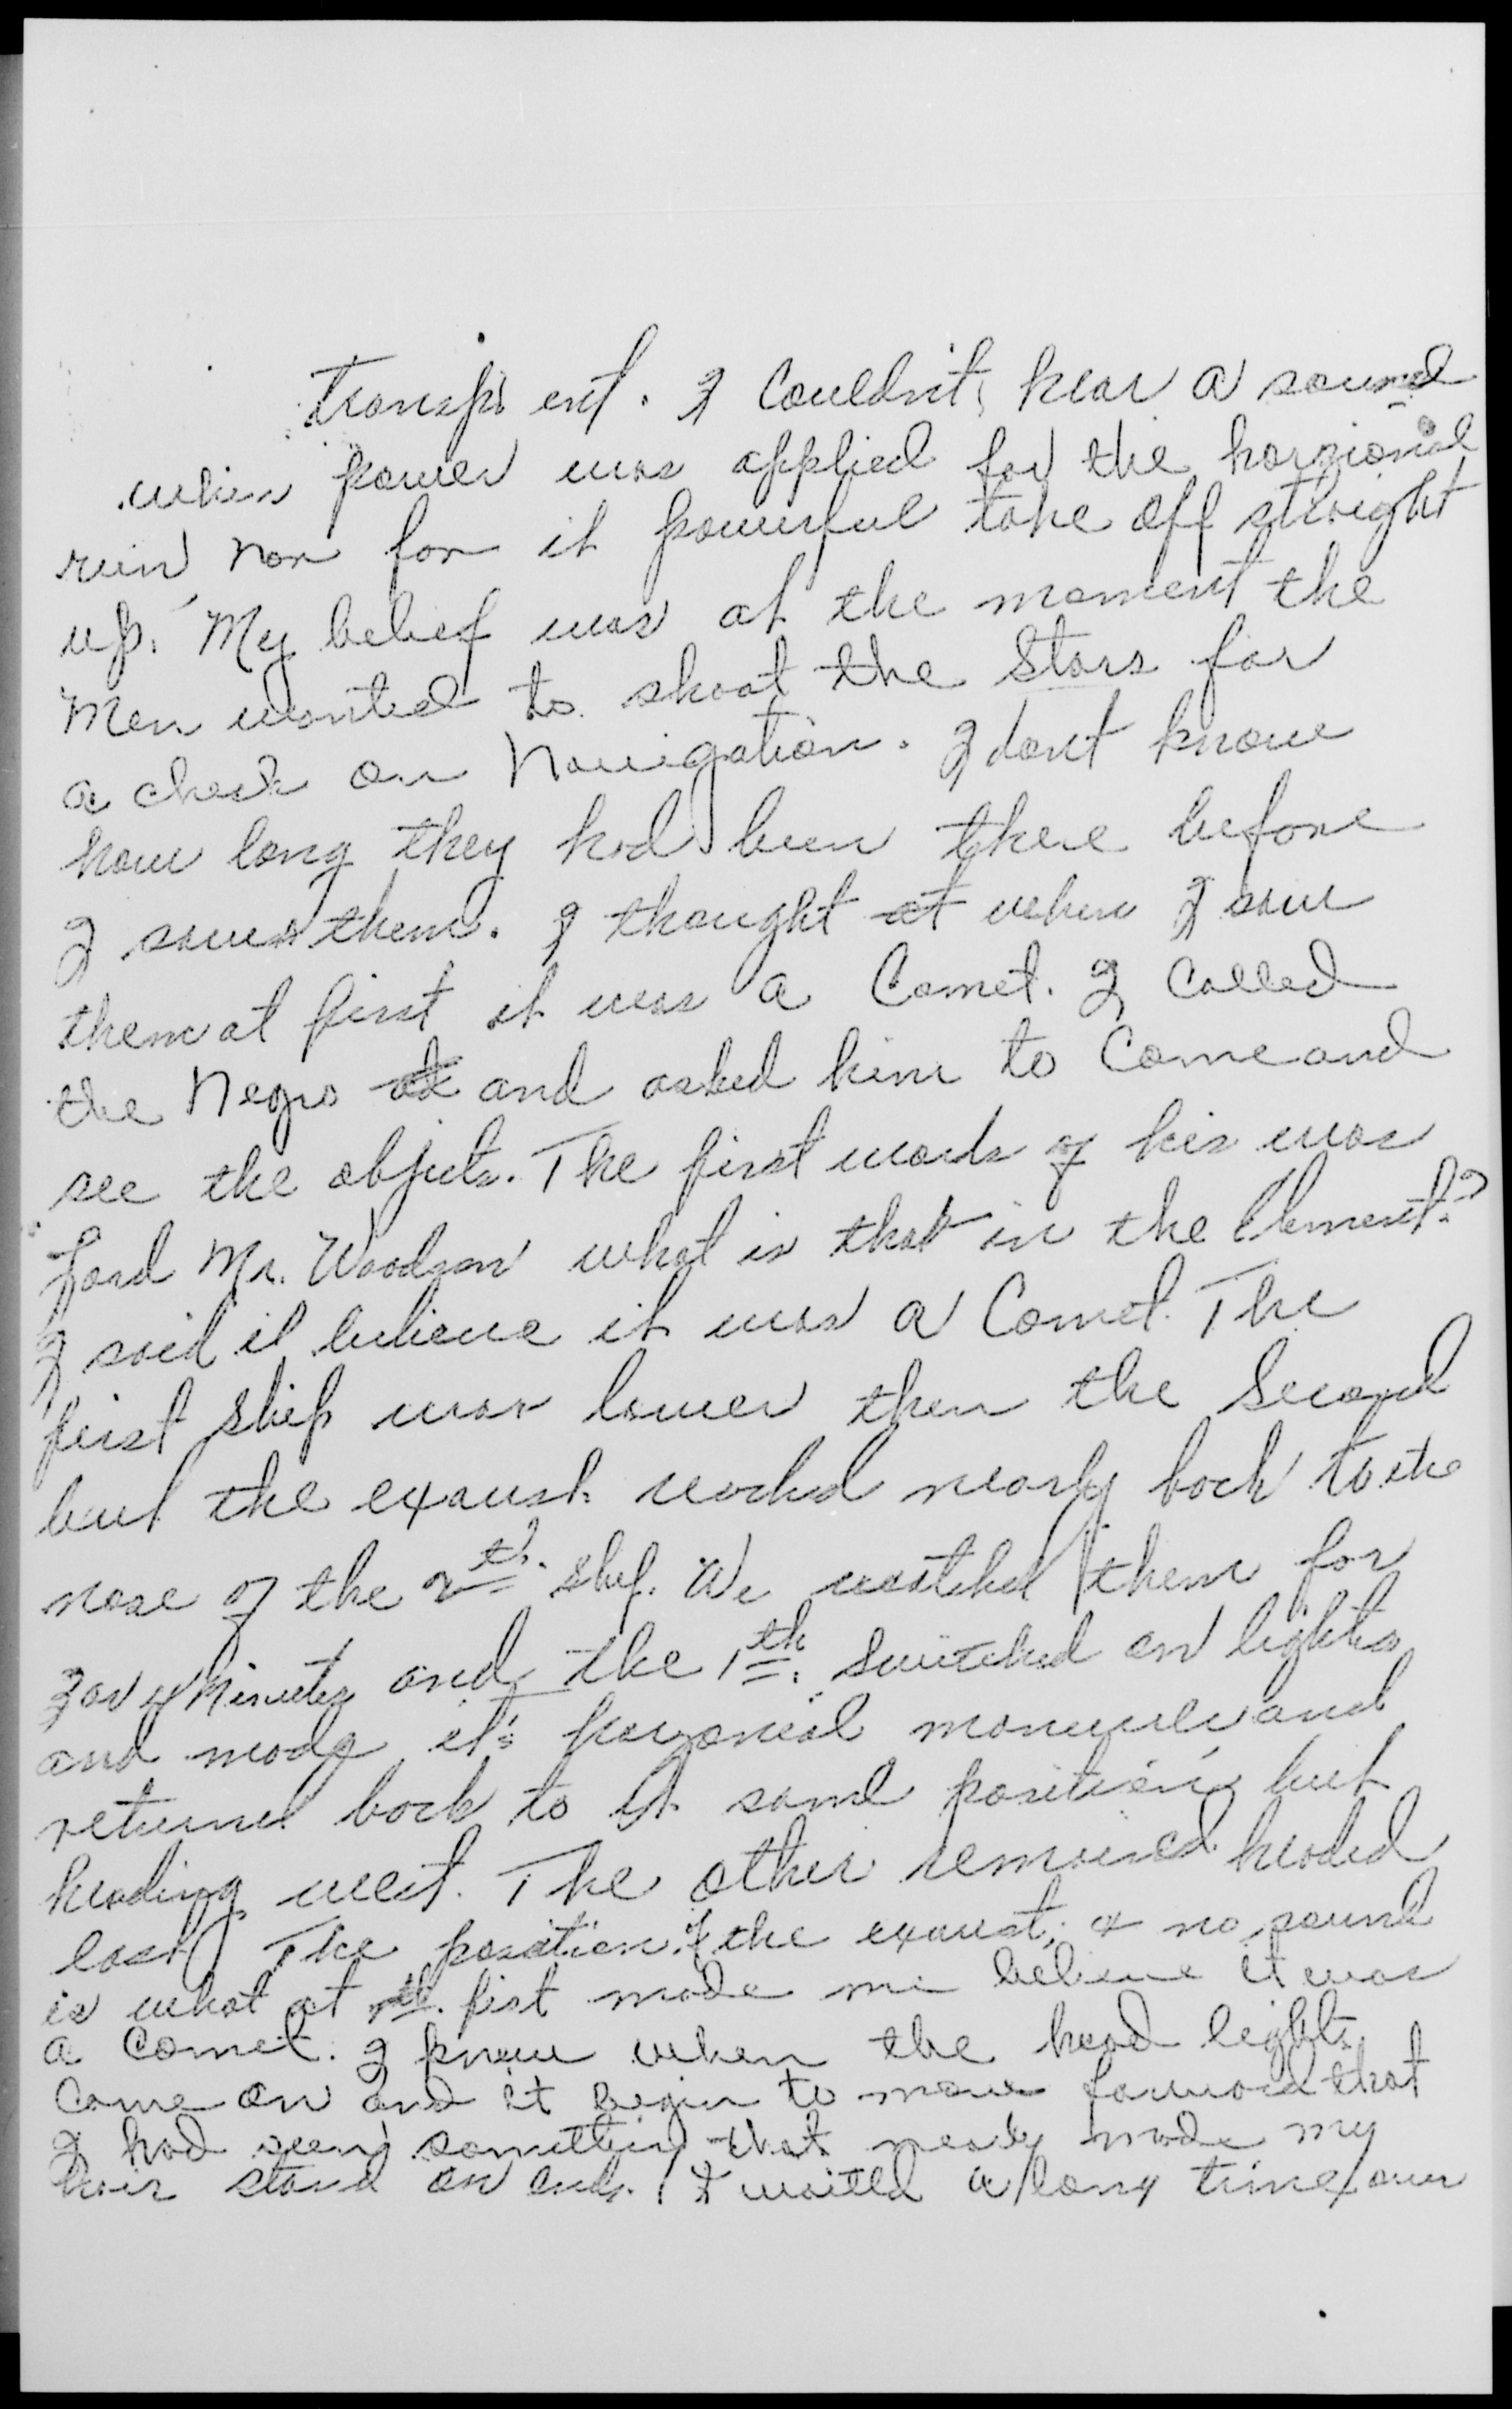 transpr ent. I Couldn't hear a sound
when power was applied for the horzionial
run nor for it powerful take off straight
up. My belief was at the moment the
Men wanted to shoot the Stars for
a check on Navigation. I dont know
how long they had been there before
I saw them. I thought at when I saw
them at first it was a Comet. I Called
the Negro and asked him to Come and
see the objects. The first words of his was
Lord Mr. Woodson what is that in the Element?
I said il believe it was a Comet. The
first ship was lower then the Second
but the exaust reached nearly back to the
nose of the 2th ship. We watched them for
3 or 4 Minutes and the 1th switched on lights
and made it's horzonial manuver and
returned back to it same position but
heading west. The other remained headed
east. The position of the exaust, & no sound
is what at first made me believe it was
a Comet. I knew when the head lights
Come on and it begin to move forward that
I had seen something that nearly made my
hair stand on ends. I waited a long time over